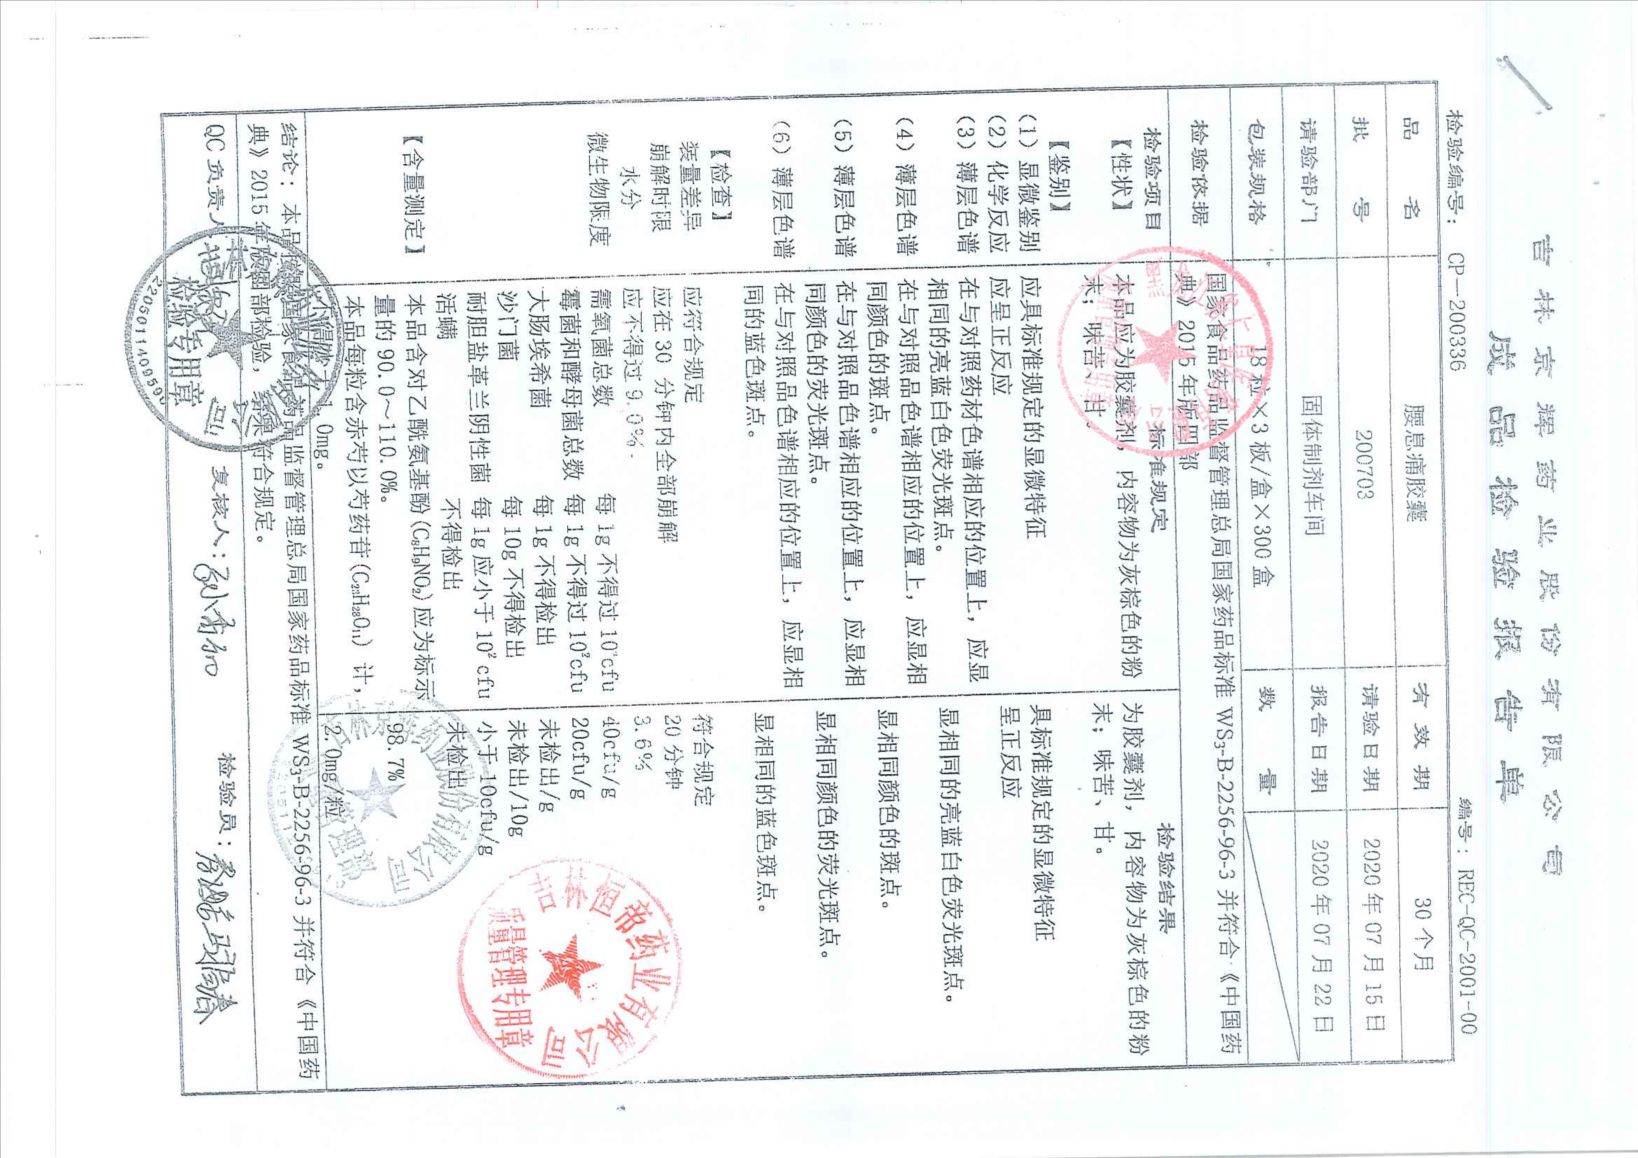 吉林京辉药业股份有限公司
成品检验报告单
编号：REC-QC-2001-00
检验编号：CP-200336
品 名 腰息痛胶囊 有效期 30个月
批 号 200703 请验日期 2020年07月15日
请验部门 固体制剂车间 报告日期 2020年07月22日
包装规格 18粒×3板/盒×300盒 数 量
检验依据 国家食品药品监督管理总局国家药品标准 WS₃-B-2256-96-3 并符合《中国药
典》2015年版四部
检验项目 标准规定 检验结果
【性状】 本品应为胶囊剂，内容物为灰棕色的粉 为胶囊剂，内容物为灰棕色的粉
末；味苦、甘。 末；味苦、甘。
【鉴别】
（1）显微鉴别 应具标准规定的显微特征 具标准规定的显微特征
（2）化学反应 应呈正反应 呈正反应
（3）薄层色谱 在与对照药材色谱相应的位置上，应显
相同的亮蓝白色荧光斑点。 显相同的亮蓝白色荧光斑点。
（4）薄层色谱 在与对照品色谱相应的位置上，应显相
同颜色的斑点。 显相同颜色的斑点。
（5）薄层色谱 在与对照品色谱相应的位置上，应显相
同颜色的荧光斑点。 显相同颜色的荧光斑点。
（6）薄层色谱 在与对照品色谱相应的位置上，应显相
同的蓝色斑点。 显相同的蓝色斑点。
【检查】
装量差异 应符合规定 符合规定
崩解时限 应在30分钟内全部崩解 20分钟
水分 应不得过9.0%. 3.6%
微生物限度 需氧菌总数 每1g不得过 cfu 40cfu/g
霉菌和酵母菌总数 每1g不得过10²cfu 20cfu/g
大肠埃希菌 每1g不得检出 未检出/g
沙门菌 每10g不得检出 未检出/10g
耐胆盐革兰阴性菌 每1g应小于10²cfu 小于10cfu/g
活螨 不得检出 未检出
【含量测定】 本品含对乙酰氨基酚(C₈H₉NO₂)应为标示
量的90.0～110.0%。 98.7%
本品每粒含赤芍以芍药苷(C₂₃H₂₈O₁₁)计，
不得少于1.0mg。 2.0mg/粒
结论：本品按国家食品药品监督管理总局国家药品标准 WS₃-B-2256-96-3 并符合《中国药
典》2015年版四部检验，结果符合规定。
QC负责人： 复核人： 检验员：
检验专用章
2205011409590
吉林恒帝药业有限公司
质量管理专用章